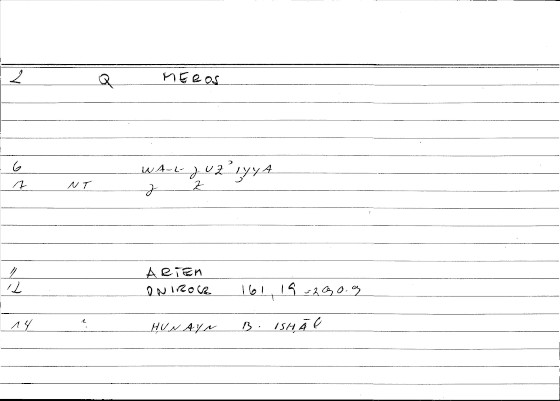 2 Q MEROS
6 WA-L-ǧUZʾIYYA
7 NT ǧ Z ʾ
11 ARTEM
12 ONIROCR 161, 19 = 290.9
14 " HUNAYN B. ISHĀQ